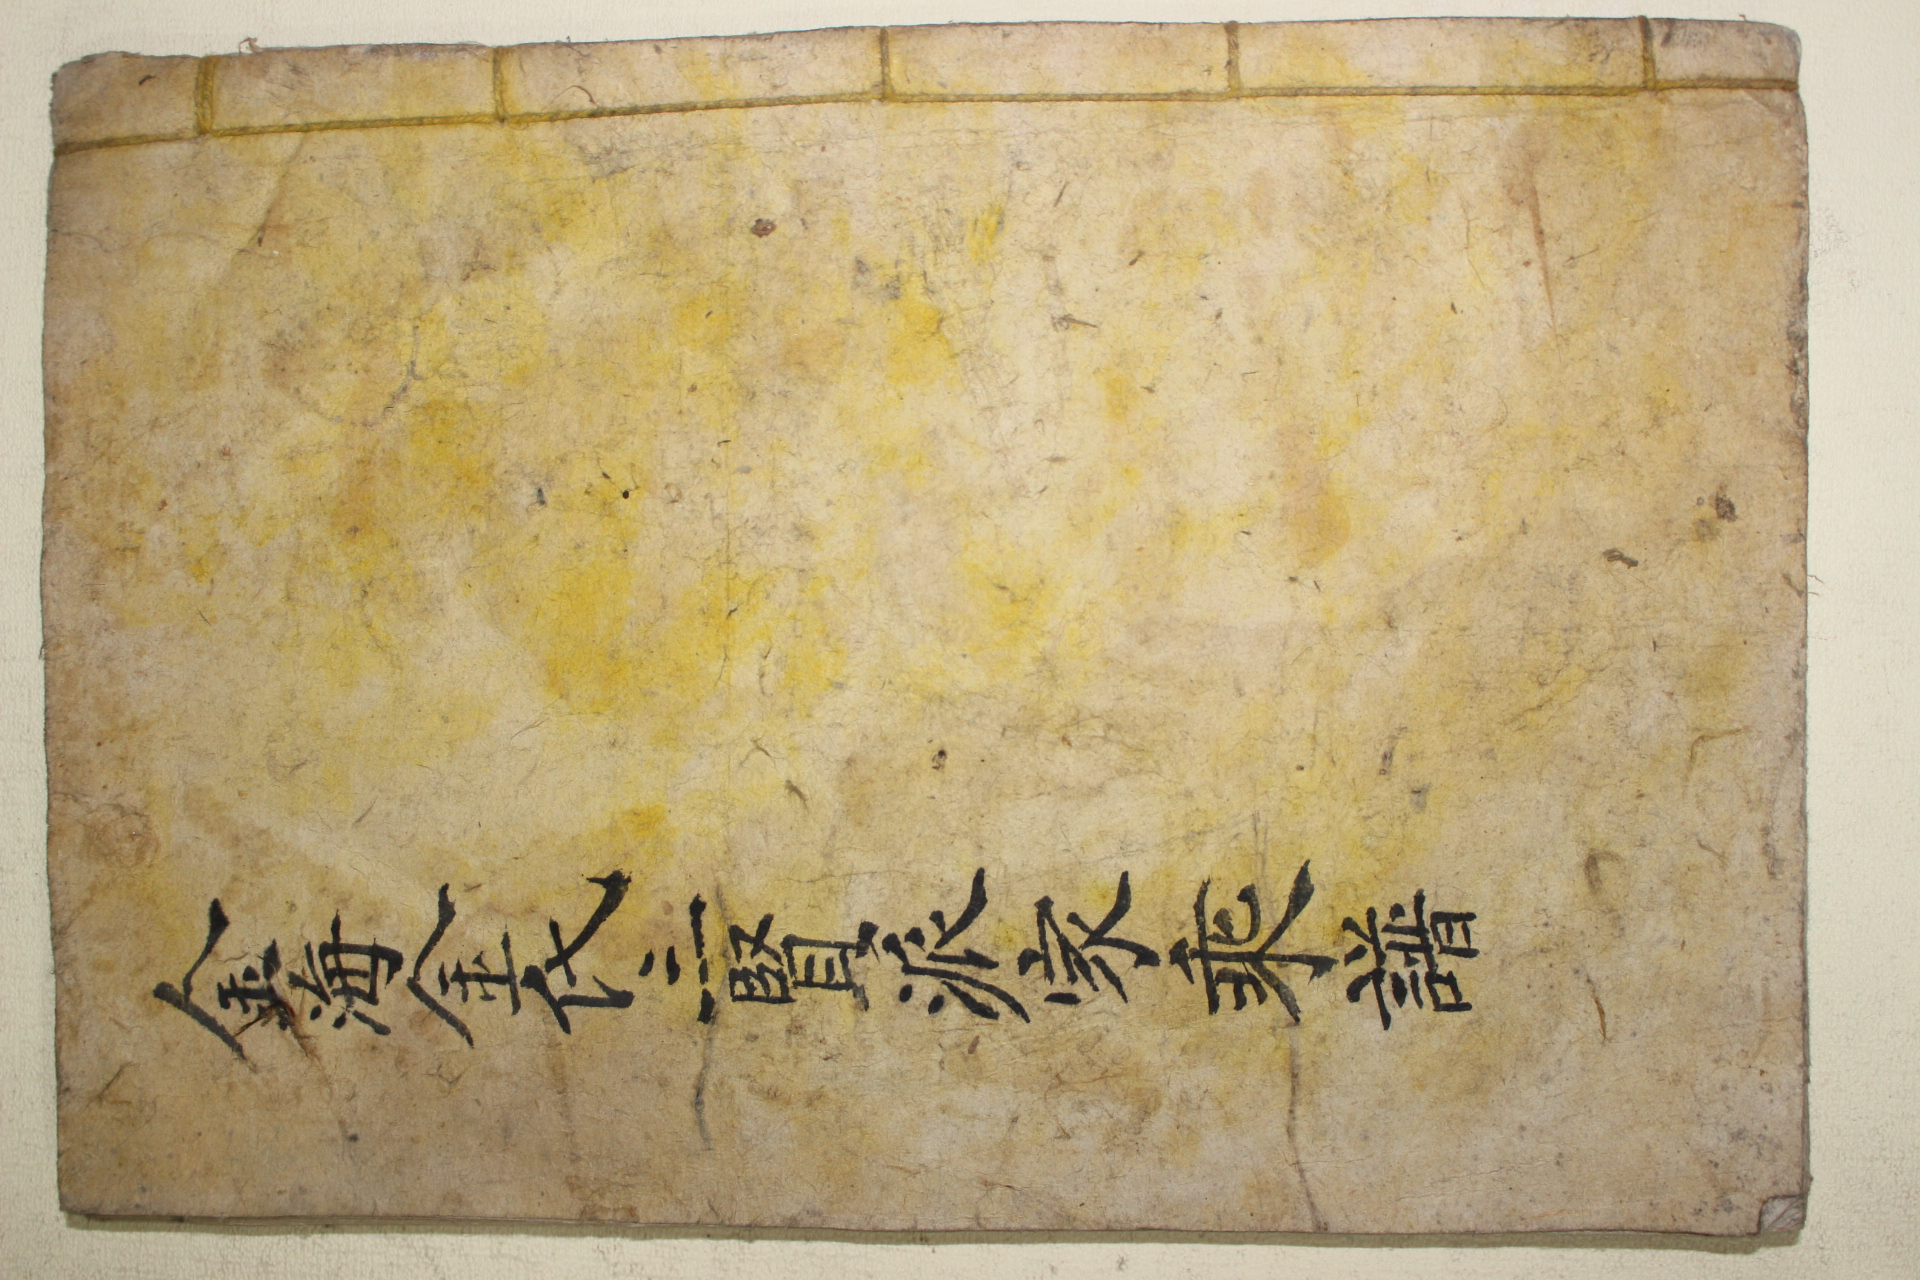 金海金氏三賢派家乘譜